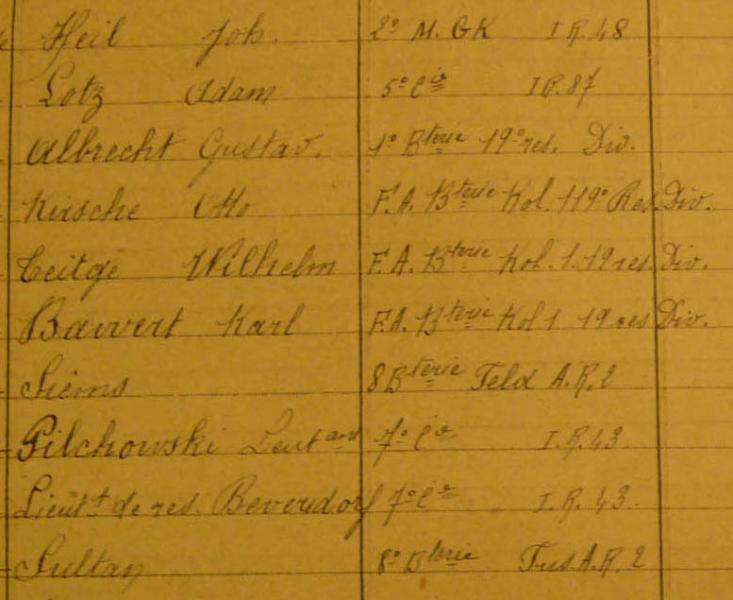 Heil Joh. 2° M. GK I R. 48
Lotz Adam 5° Cie I R. 87
Albrecht Gustav. 1° Bterie 19° res. Div.
Kirsche Otto F. A. Bterie Kol. 119° Res. Div.
Teitge Wilhelm F. A. Bterie Kol. 1. 19 res. Div.
Bawert Karl F.A. Bterie Kol 1 19 res Div.
Siems 8 Bterie Feld A.R. 2
Pilchowski Leutant 7° Cie I. R. 43.
Lieutt de res. Beverdorf 7° Cie I. R. 43.
Sultan 8° Bterie Fus. A.R. 2